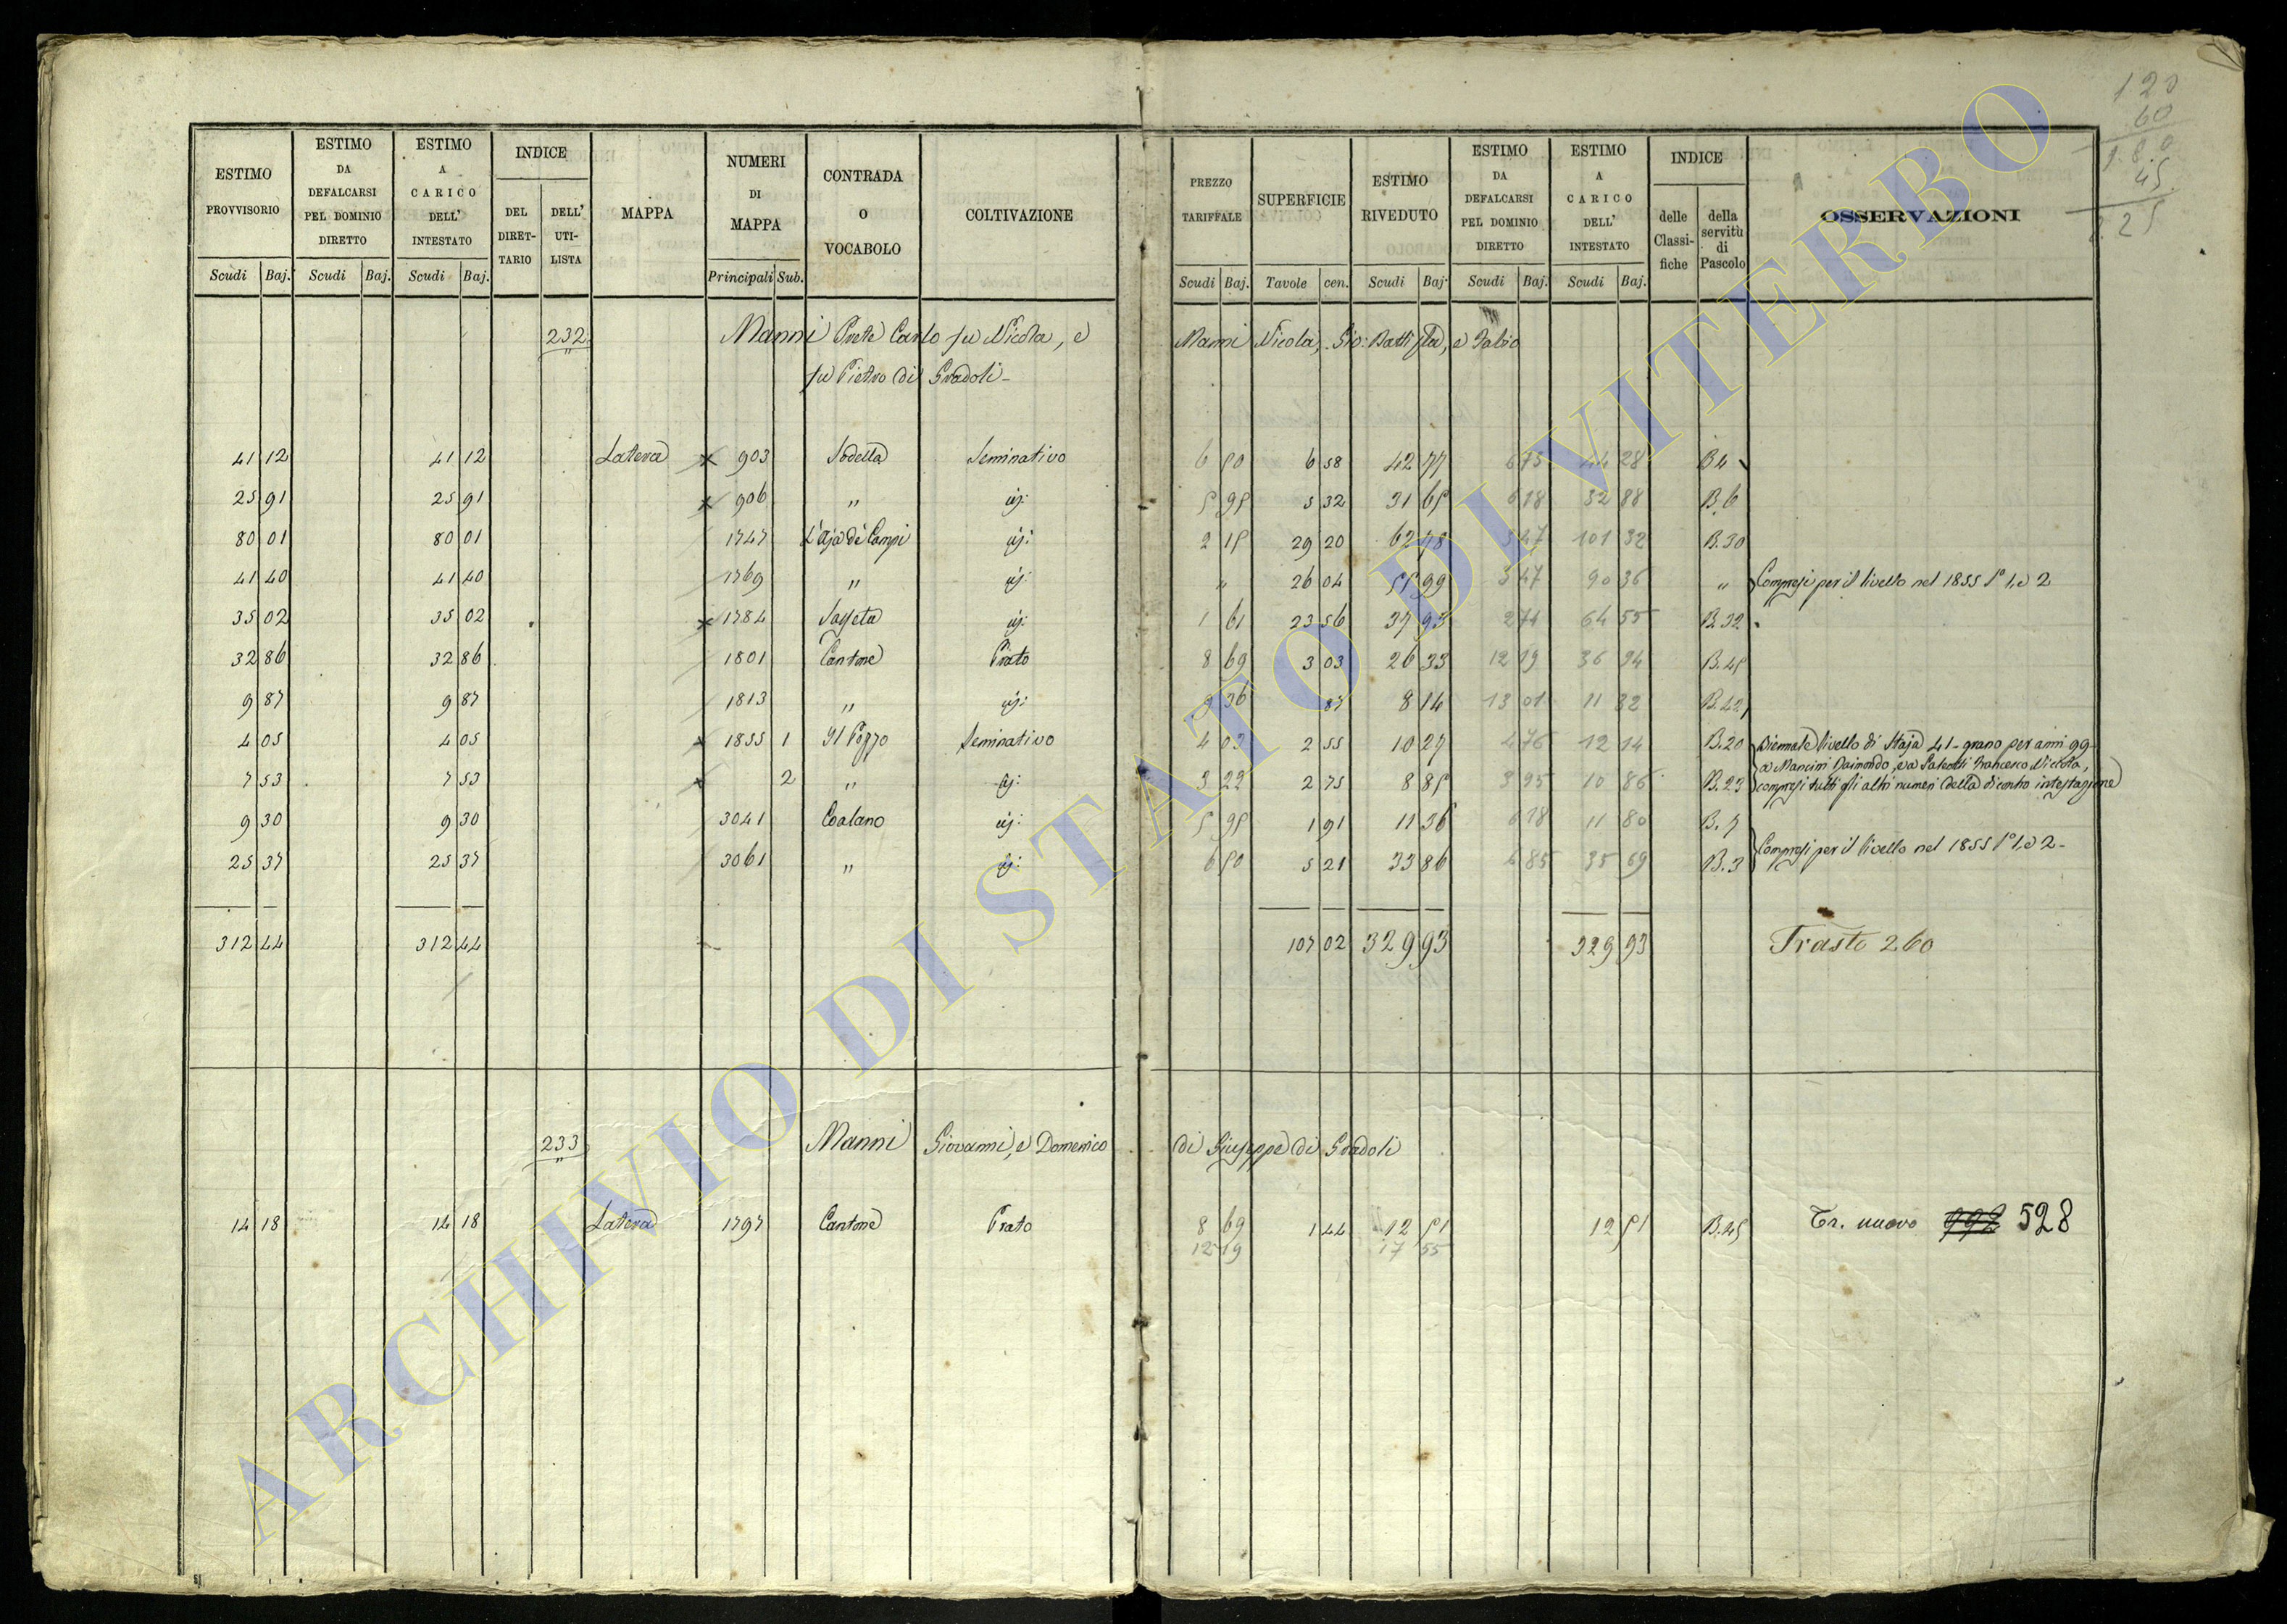 ESTIMO PROVVISORIO | ESTIMO DA DEFALCARSI PEL DOMINIO DIRETTO | ESTIMO A CARICO DELL' INTESTATO | INDICE DEL DIRET-TARIO | DELL' UTI-LISTA | MAPPA | NUMERI DI MAPPA | CONTRADA O VOCABOLO | COLTIVAZIONE | PREZZO TARIFFALE | SUPERFICIE | ESTIMO RIVEDUTO | ESTIMO DA DEFALCARSI PEL DOMINIO DIRETTO | ESTIMO A CARICO DELL' INTESTATO | INDICE delle Classi-fiche | della servitù di Pascolo | OSSERVAZIONI
Scudi Baj. Scudi Baj. Scudi Baj. Principali Sub. Scudi Baj. Tavole cen. Scudi Baj. Scudi Baj. Scudi Baj.
120
60
1.8.0
45
2.25
232 Manni Prete Carlo fu Nicola, e Manni Nicola, Gio: Battista, e Fabio
fu Pietro di Gradoli
41 12 41 12 Latera × 903 Sodella Seminativo 6 50 6 58 42 77 6 73 44 28 B.4
25 91 25 91 × 906 " id: 5 95 5 32 31 65 6 18 32 88 B.6
80 01 80 01 1747 L'Aja de Campi id: 2 15 29 20 62 78 3 47 101 32 B.30
41 40 41 40 1769 " id: " 26 04 55 99 3 47 90 36 " Compresi per il livello nel 1855 S° 1, e 2
35 02 35 02 × 1784 Sasseta id: 1 61 23 56 37 93 2 74 64 55 B.32
32 86 32 86 1801 Cantone Prato 8 69 3 03 26 33 12 19 36 94 B.45
9 87 9 87 1813 " id: 9 36 87 8 14 13 01 11 32 B.42
4 05 4 05 × 1855 1 Il Pozzo Seminativo 4 03 2 55 10 27 4 76 12 14 B.20 Biennale livello di Staja 41 - grano per anni 99
a Mancini Raimondo, e a Francesco Nicola,
7 53 7 53 × 2 " id: 3 22 2 75 8 85 3 95 10 86 B.23 compresi tutti gli altri numeri della di contro intestazione
9 30 9 30 3041 Coalano id: 5 95 1 91 11 36 6 18 11 80 B.7
25 37 25 37 3061 " id: 6 50 5 21 33 86 6 85 35 69 B.3 Compresi per il livello nel 1855 S° 1, e 2
312 44 312 44 107 02 329 93 329 93 Trasto 260
233 Manni Giovanni, e Domenico di Giuseppe di Gradoli
14 18 14 18 Latera 1797 Cantone Prato 8 69 1 44 12 51 12 51 B.45 Tr. nuovo 992 528
12 19 17 55
ARCHIVIO DI STATO DI VITERBO